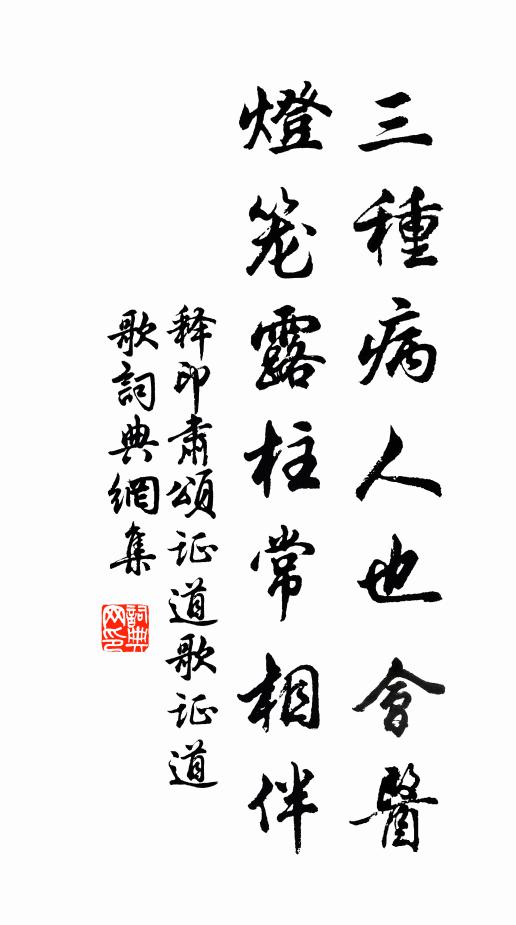 三種病人也會醫
燈笼露柱常相伴
释印肅頌证道歌证道
歌詞典網集
詞典网印